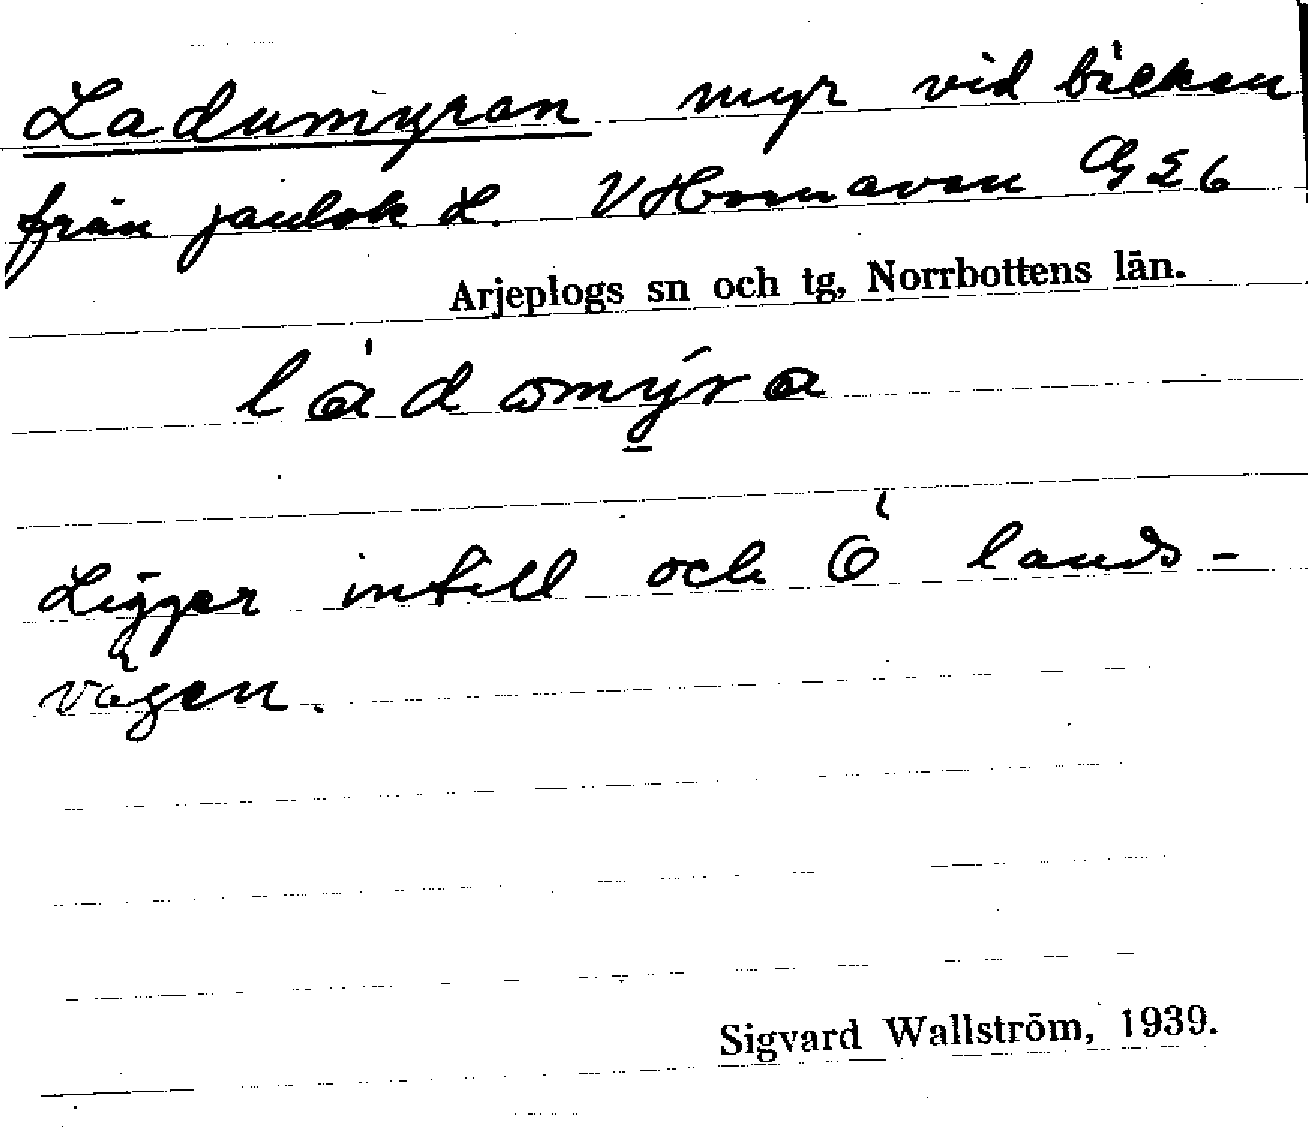 Ladumyran myr vid bäcken
från jaulok L. V Hornavan G 26
Arjeplogs sn och tg, Norrbottens län.
ládomýra
Ligger intill och Ö lands-
vägen.
Sigvard Wallström, 1939.